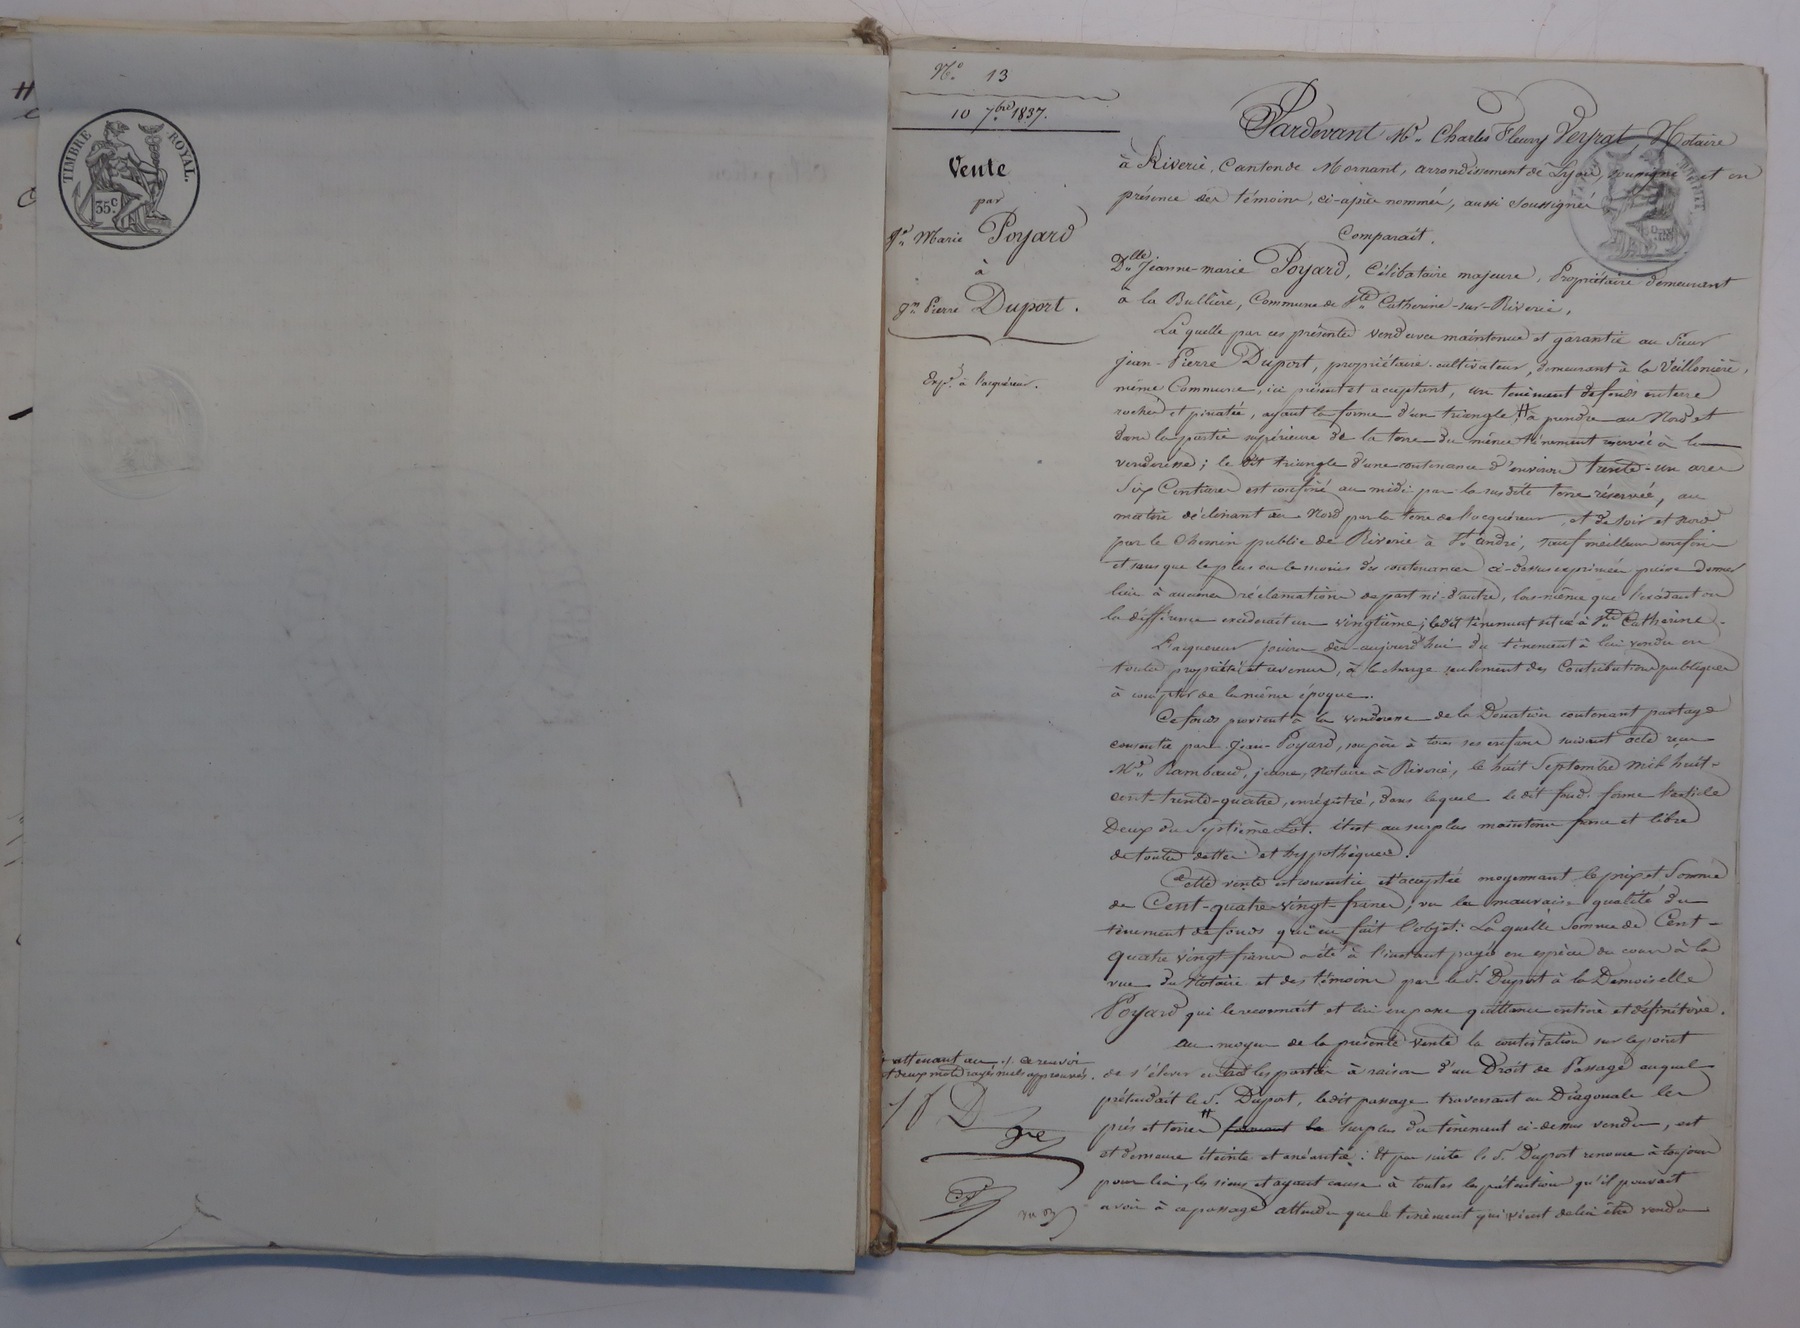 TIMBRE ROYAL.
35c
N.° 13
10 7.bre 1837.
Vente
par
J.ne Marie Poyard
à
J.n Pierre Duport.
Exp.é à l'acquéreur.
Pardevant M.e Charles Fleury Veyrat, Notaire
à Riverie, Canton de Mornant, arrondissement de Lyon, soussigné et en
présence des témoins, ci-après nommés, aussi soussignés
Comparait.
D.lle Jeanne-marie Poyard, Célibataire majeure, Propriétaire demeurant
à la Bullière, Commune de S.te Catherine-sur-Riverie,
La quelle par ces présentes vend avec maintenue et garantie au Sieur
jean-Pierre Duport, propriétaire-cultivateur, demeurant à la Veillonière,
même Commune, ici présent et acceptant, un tenement de fonds en terre
rocher et pinatée, ayant la forme d'un triangle, # à prendre au Nord et
dans la partie supérieure de la terre du même ténement réservée à la
venderesse; le dit triangle d'une contenance d'environ trente-un ares
Six Centiares est confiné au midi par la susdite terre réservée, au
matin déclinant au Nord par la terre de l'acquéreur, et de soir et nord
par le Chemin public de Riverie à S.t andré, sauf meilleurs confins
et sans que le plus ou le moins des contenances ci-dessus exprimées puisse donner
lieu à aucunes réclamations de part ni d'autre, lors-même que l'excédant ou
la différence excéderait un vingtième; ledit ténement situé à S.te Catherine.
L'acquéreur jouira dès-aujourd'hui du ténement à lui vendu en
toute propriété et revenus, à la charge seulement des Contributions publiques
à compter de la même époque.
Ce fonds provient à la venderesse de la Donation contenant partage
consentie par Jean-Poyard, son père à tous ses enfans suivant acte reçu
M.e Rambaud, jeune, Notaire à Riverie, le huit Septembre mil huit-
cent-trente-quatre, enregistré, dans lequel le dit fonds forme l'article
Deux du Septième Lot. il est au surplus maintenu franc et libre
de toutes dettes et hypothèques.
Cette vente est consentie et acceptée moyennant le prix et Somme
de Cent-quatre-vingt-francs, vu la mauvaise qualité du
ténement de fonds qui en fait l'objet: La quelle Somme de Cent-
quatre vingt francs a été à l'instant payée en espèces de cours à la
vue du Notaire et des témoins par le S.r Duport à la Demoiselle
Poyard qui le reconnait et lui en passe quittance entière et définitive.
au moyen de la présente vente la contestation sur le point
de s'élever entre les parties à raison d'un Droit de Passage auquel
prétendait le S.r Duport, ledit passage traversant en Diagonale les
prés et terres # formant le surplus du ténement ci-dessus vendu, est
et demeure éteinte et anéantie: Et par suite le S.r Duport renonce à toujours
pour lui, les siens et ayant cause à toutes les prétentions qu'il pouvait
avoir à ce passage attendu que le ténement qui vient de lui être vendu
attenant au ./. ce renvoi
et deux mots rayés nuls approuvés.
J P D